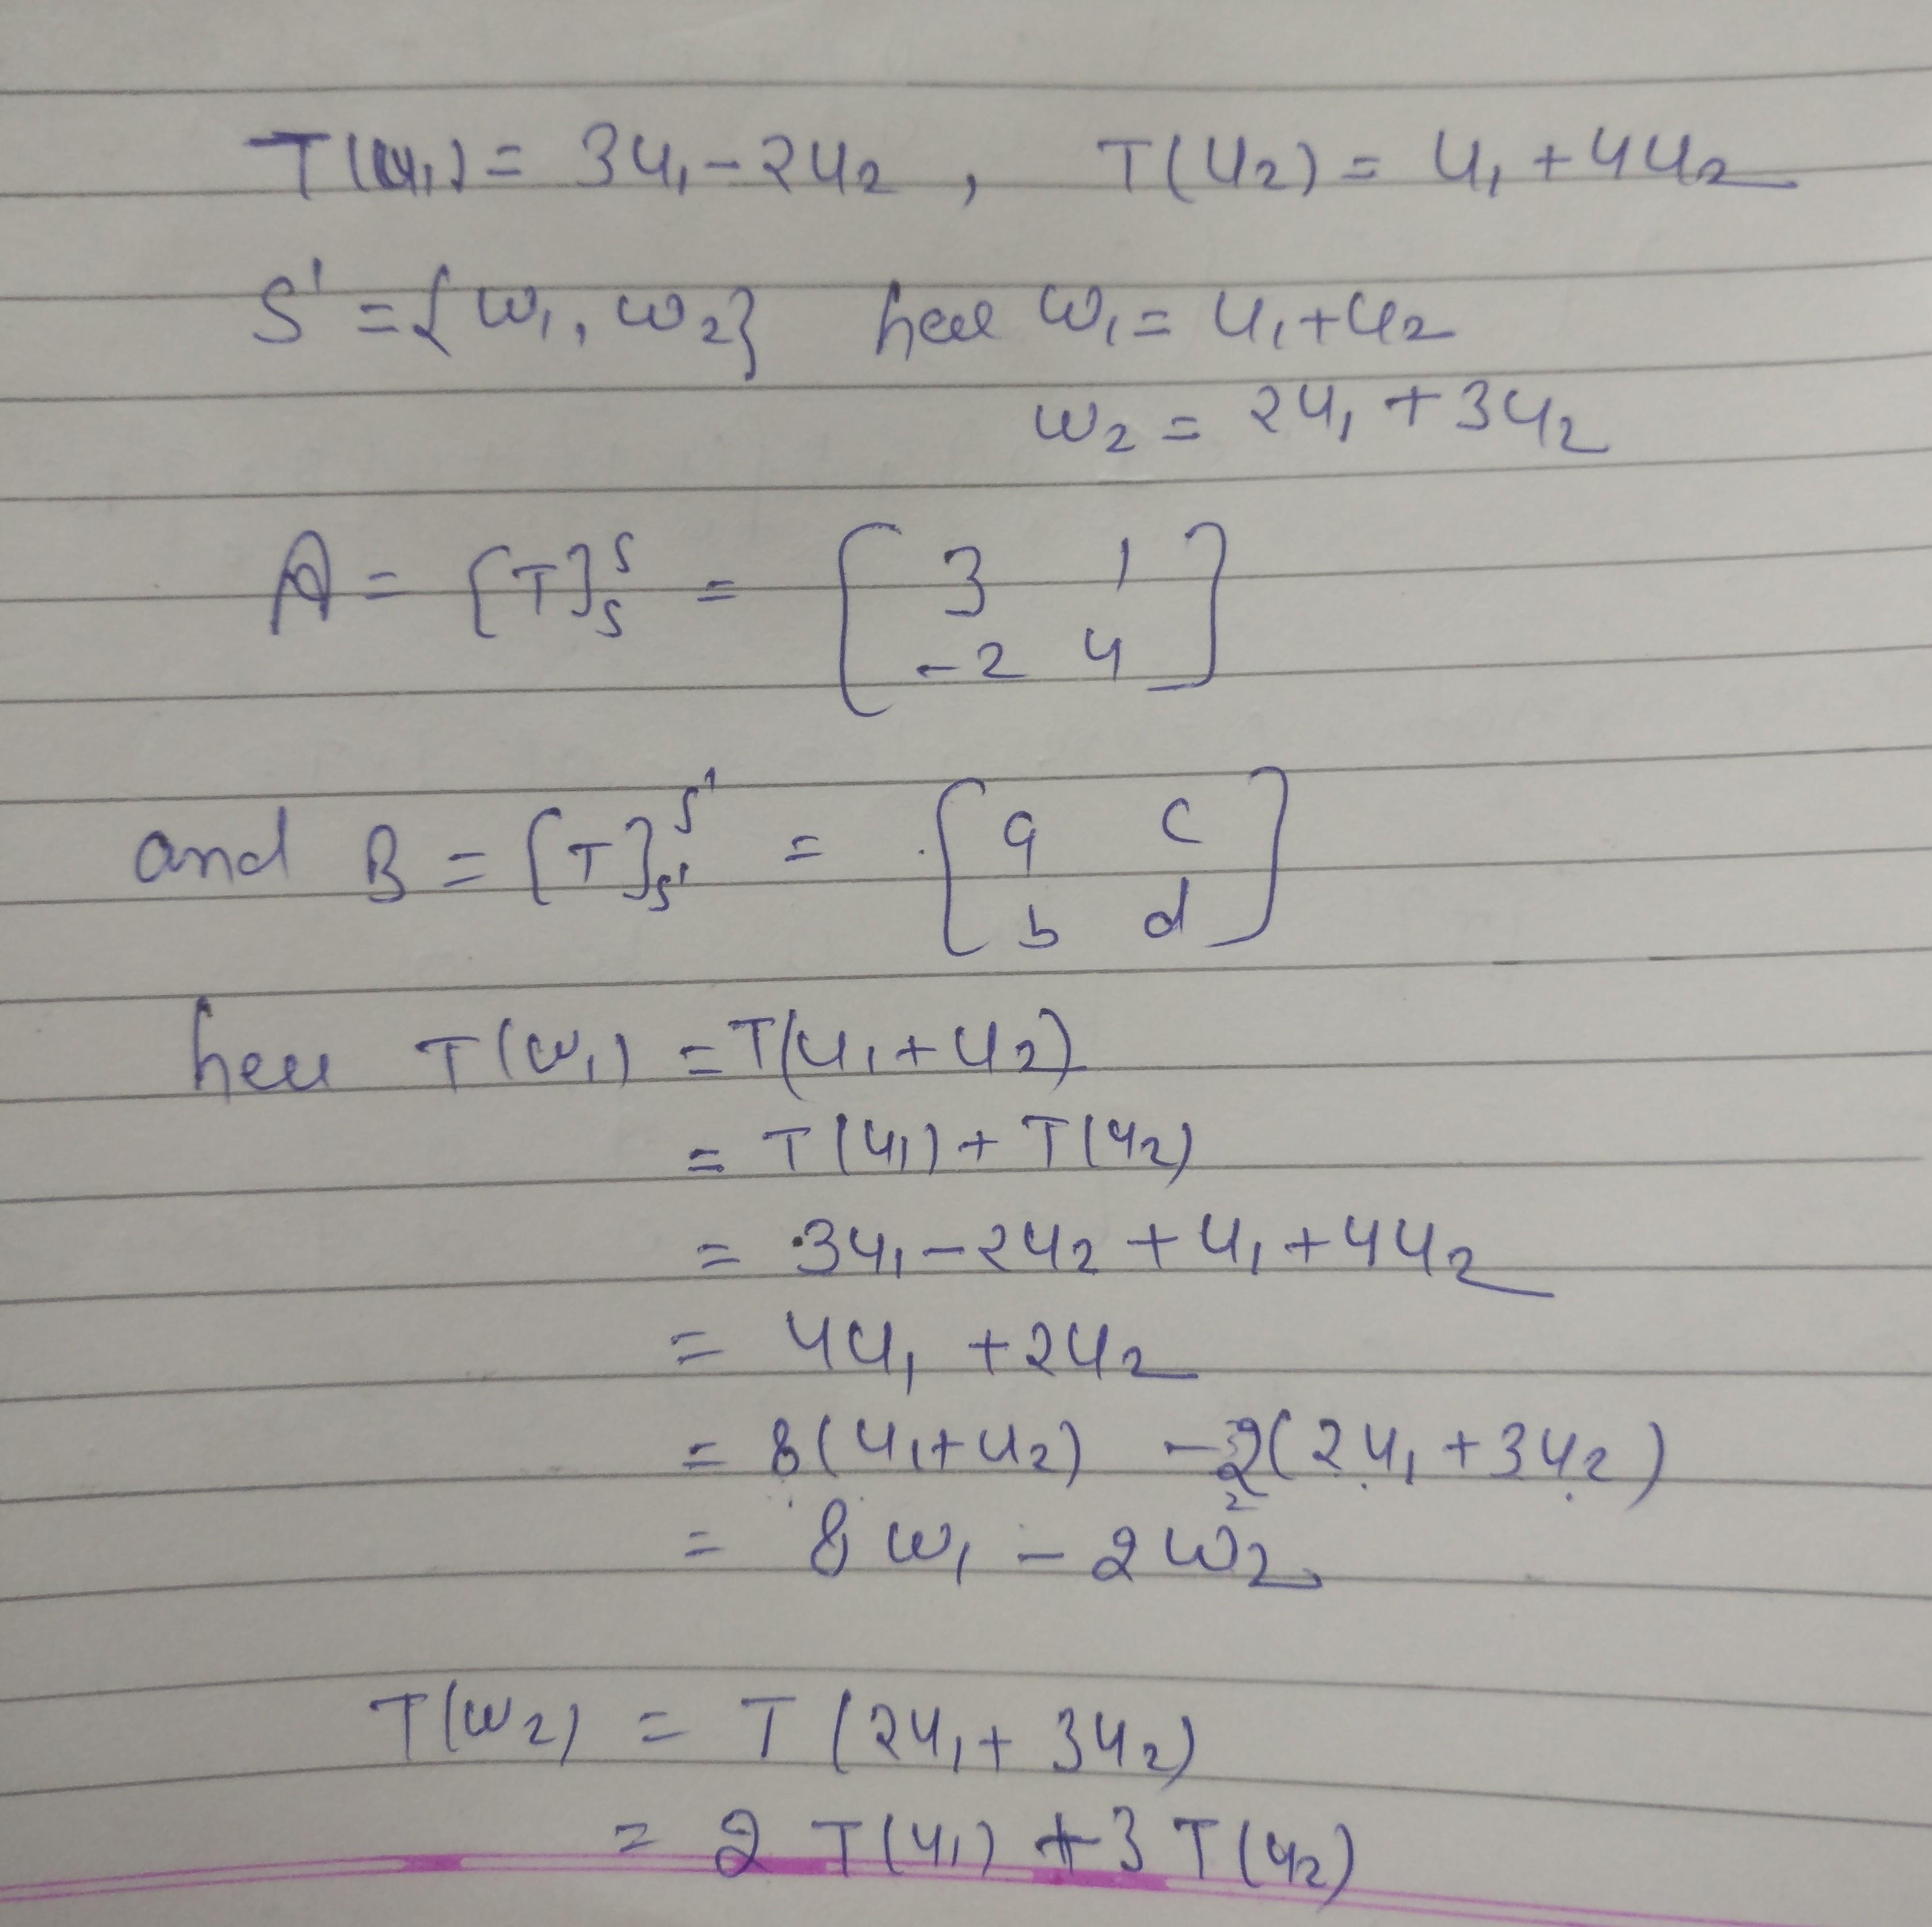 T(u₁) = 3u₁ - 2u₂ , T(u₂) = u₁ + 4u₂
S' = {w₁, w₂} here w₁ = u₁ + u₂
w₂ = 2u₁ + 3u₂
A = [T]ₛˢ = [3 1
-2 4]
and B = [T]ₛ'ˢ' = [a c
b d]
here T(w₁) = T(u₁ + u₂)
= T(u₁) + T(u₂)
= 3u₁ - 2u₂ + u₁ + 4u₂
= 4u₁ + 2u₂
= 8(u₁ + u₂) - 2(2u₁ + 3u₂)
= 8w₁ - 2w₂
T(w₂) = T(2u₁ + 3u₂)
= 2T(u₁) + 3T(u₂)